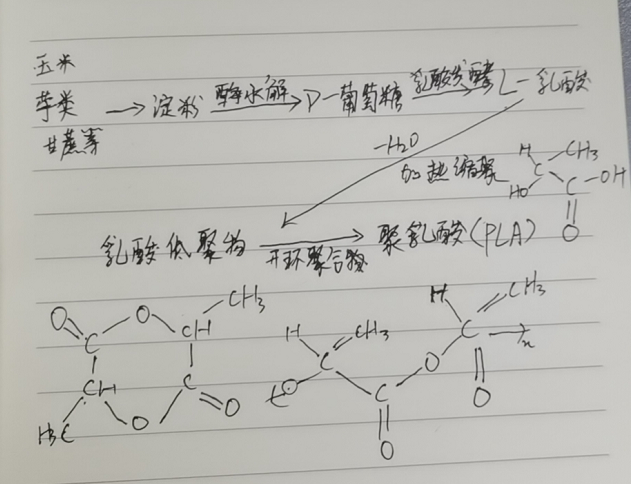 玉米
芋类 → 淀粉 酶水解 D-葡萄糖 乳酸发酵 L-乳酸
甘蔗等
-H2O
加热缩聚
H CH3
HO C C-OH
O
乳酸低聚物 开环聚合物 聚乳酸(PLA)
CH3 H CH3
O O CH H CH3
C C C O C n
CH C O C O
H3C O O O